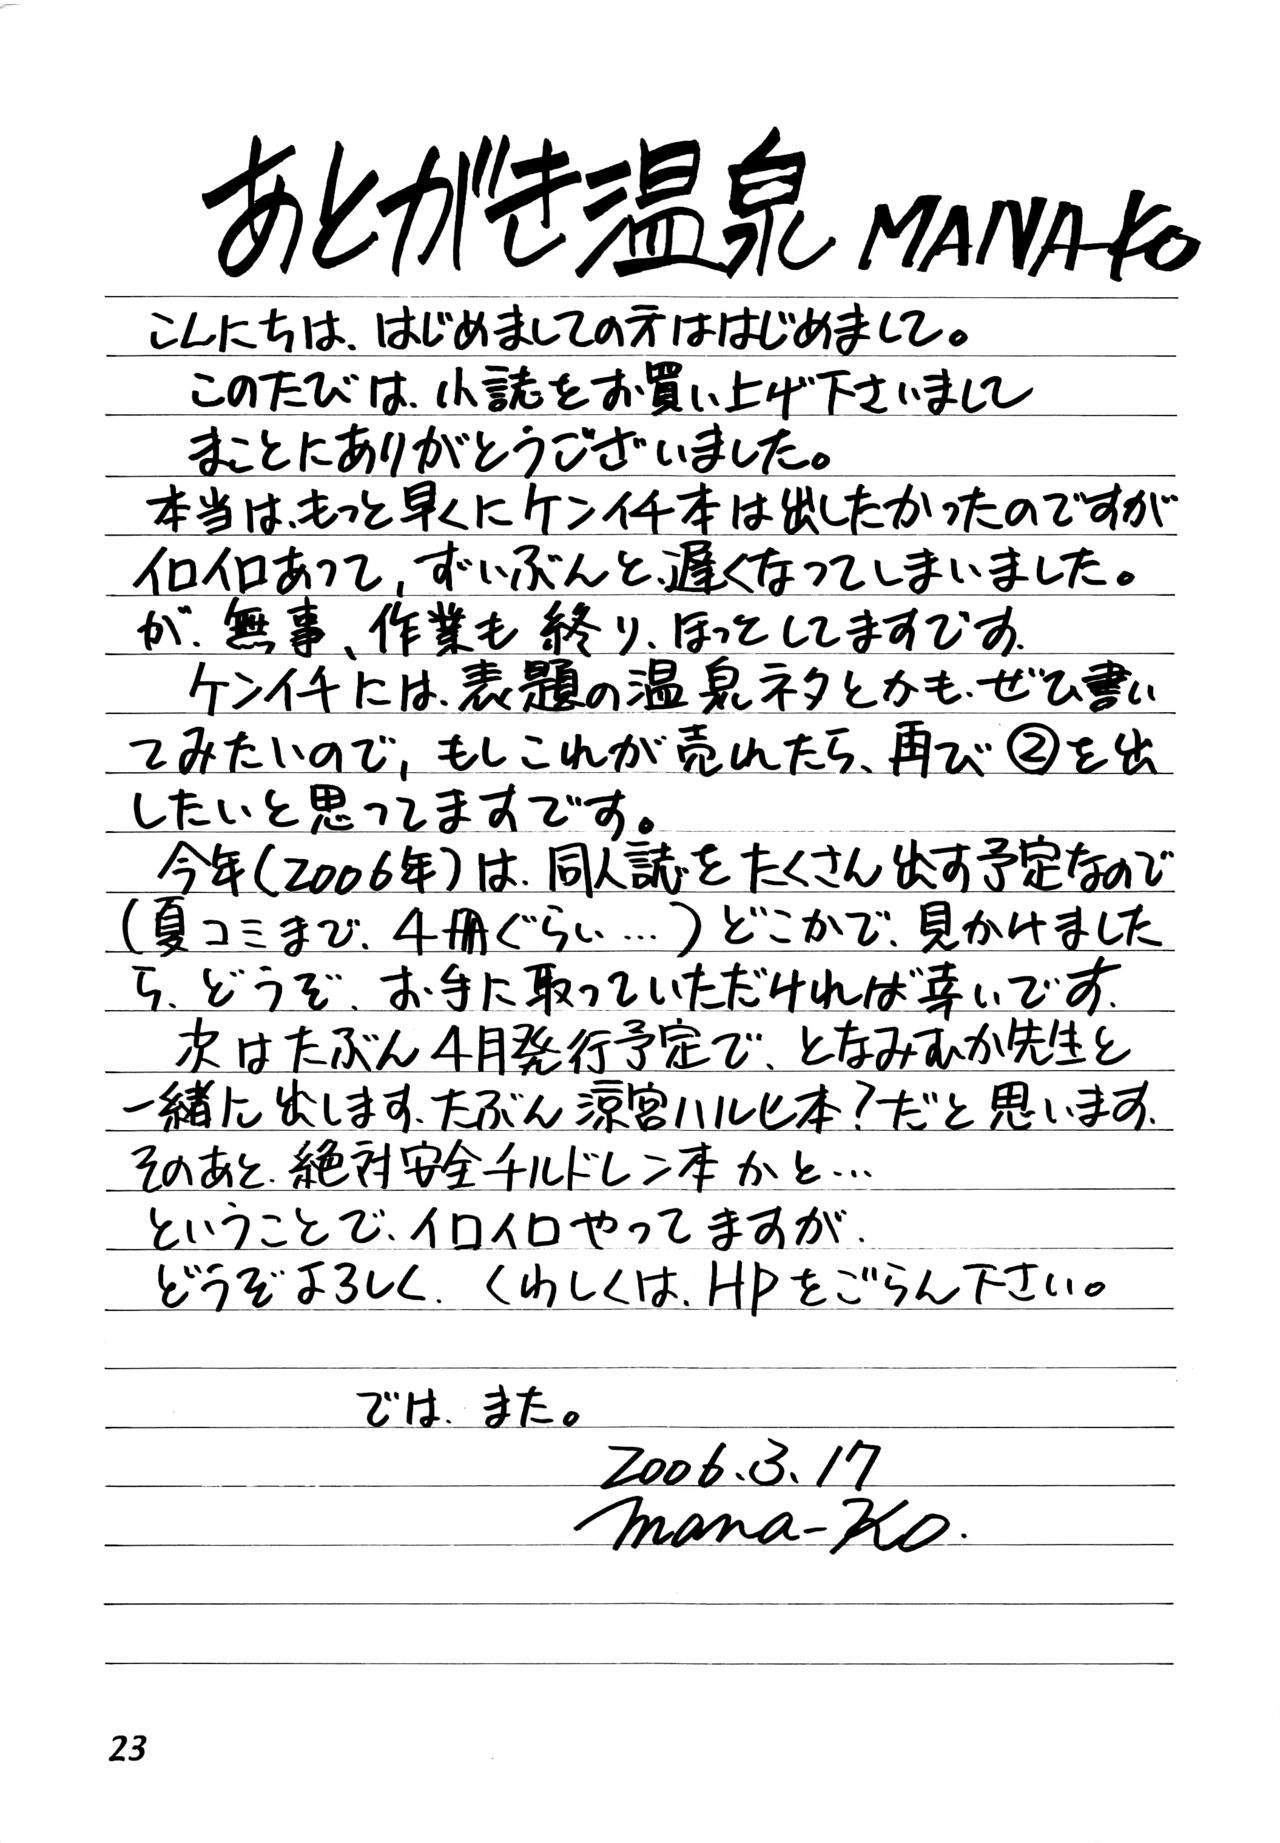 あとがき温泉 MANA-KO
こんにちは、はじめましての方ははじめまして。
このたびは、小誌をお買い上げ下さいまして
まことにありがとうございました。
本当は、もっと早くにケンイチ本は出したかったのですが
イロイロあって、ずいぶんと、遅くなってしまいました。
が、無事、作業も終り、ほっとしてますです。
ケンイチには、表題の温泉ネタとかも、ぜひ書い
てみたいので、もしこれが売れたら、再び②を出
したいと思ってますです。
今年(2006年)は、同人誌をたくさん出す予定なので
(夏コミまで、4冊ぐらい…)どこかで、見かけました
ら、どうぞ、お手に取っていただければ幸いです。
次はたぶん4月発行予定で、となみむか先生と
一緒に出します、たぶん涼宮ハルヒ本?だと思います。
そのあと、絶対安全チルドレン本かと…
ということで、イロイロやってますが、
どうぞよろしく、くわしくは、HPをごらん下さい。
では、また。
2006.3.17
mana-Ko.
23